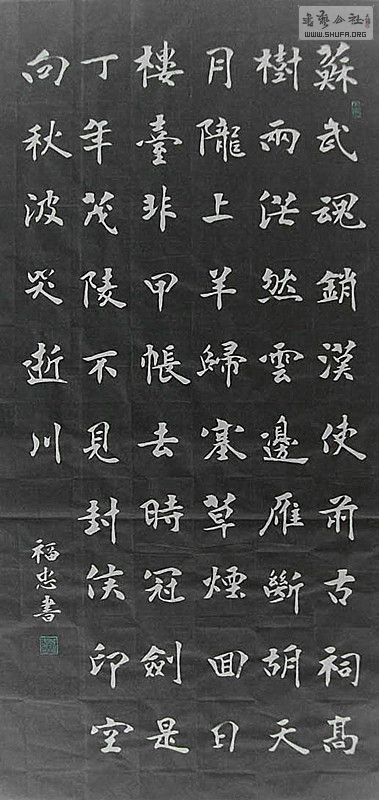 蘇武魂銷漢使前古祠高
樹兩茫然雲邊雁斷胡天
月隴上羊歸塞草煙回日
樓臺非甲帳去時冠劍是
丁年茂陵不見封侯印空
向秋波哭逝川
福忠書
书艺公社
WWW.SHUFA.ORG